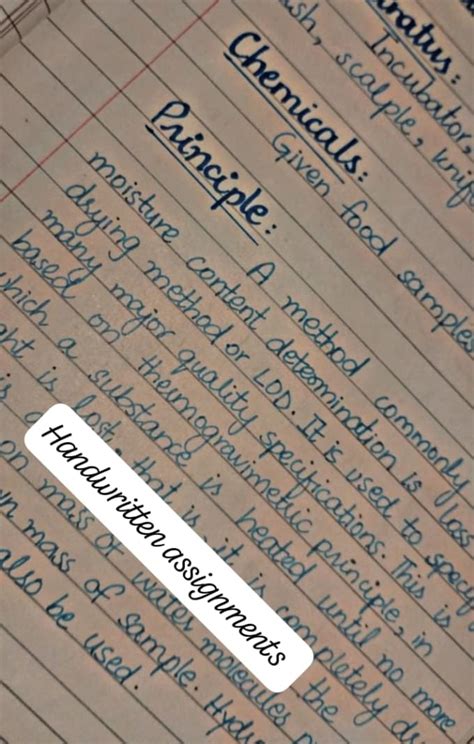 aratus:
Incubator,
sh, scalple, knif
Chemicals:
Given food samples
Principle:
A method commonly
moisture content determination is loss
drying method or LOD. It is used to speci
many major quality specifications. This is
based on thermogravimetric principle, in
which a substance is heated until no more
ght is lost that is, it is completely d
is
on mass of water molecules
n mass of sample. Hyd
also be used.
the
Handwritten assignments